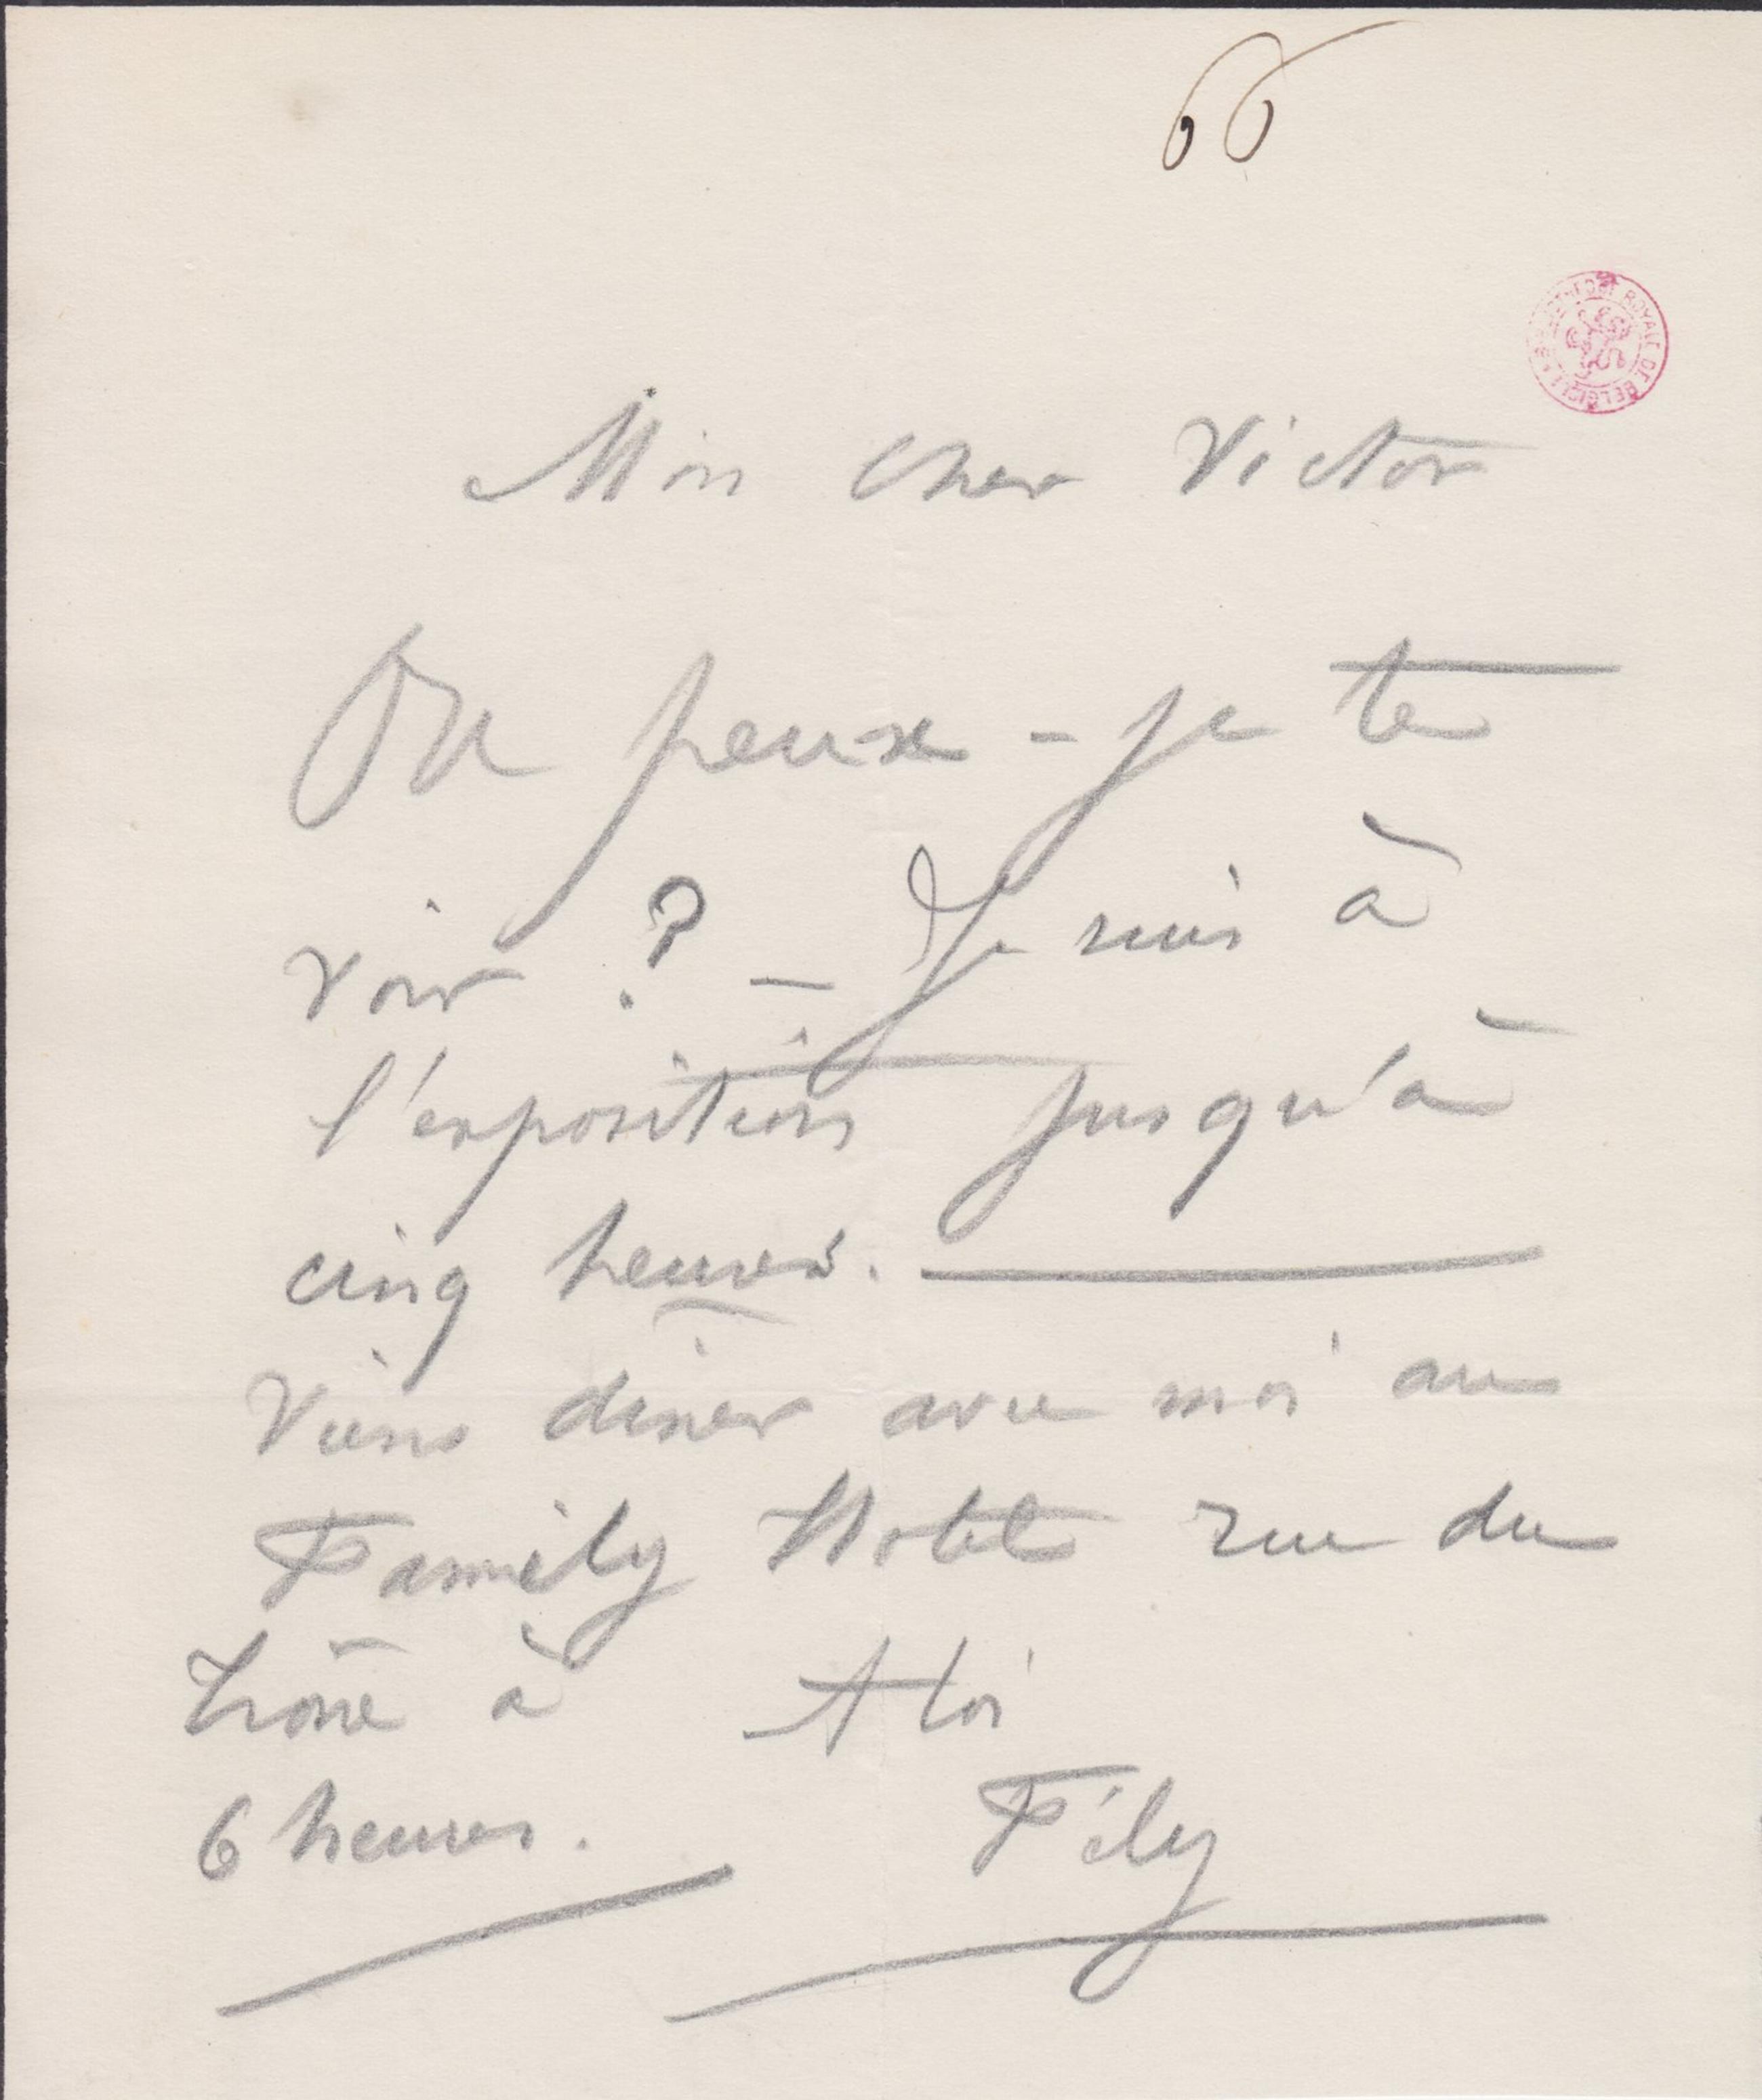 66
BIBLIOTHÈQUE ROYALE DE BELGIQUE
Mon cher Victor
Ou peux-je te
voir ? — Je suis à
l'exposition jusqu'à
cinq heures. —
Viens diner avec moi au
Family Hotel rue du
Trône à A toi
6 heures. Fély